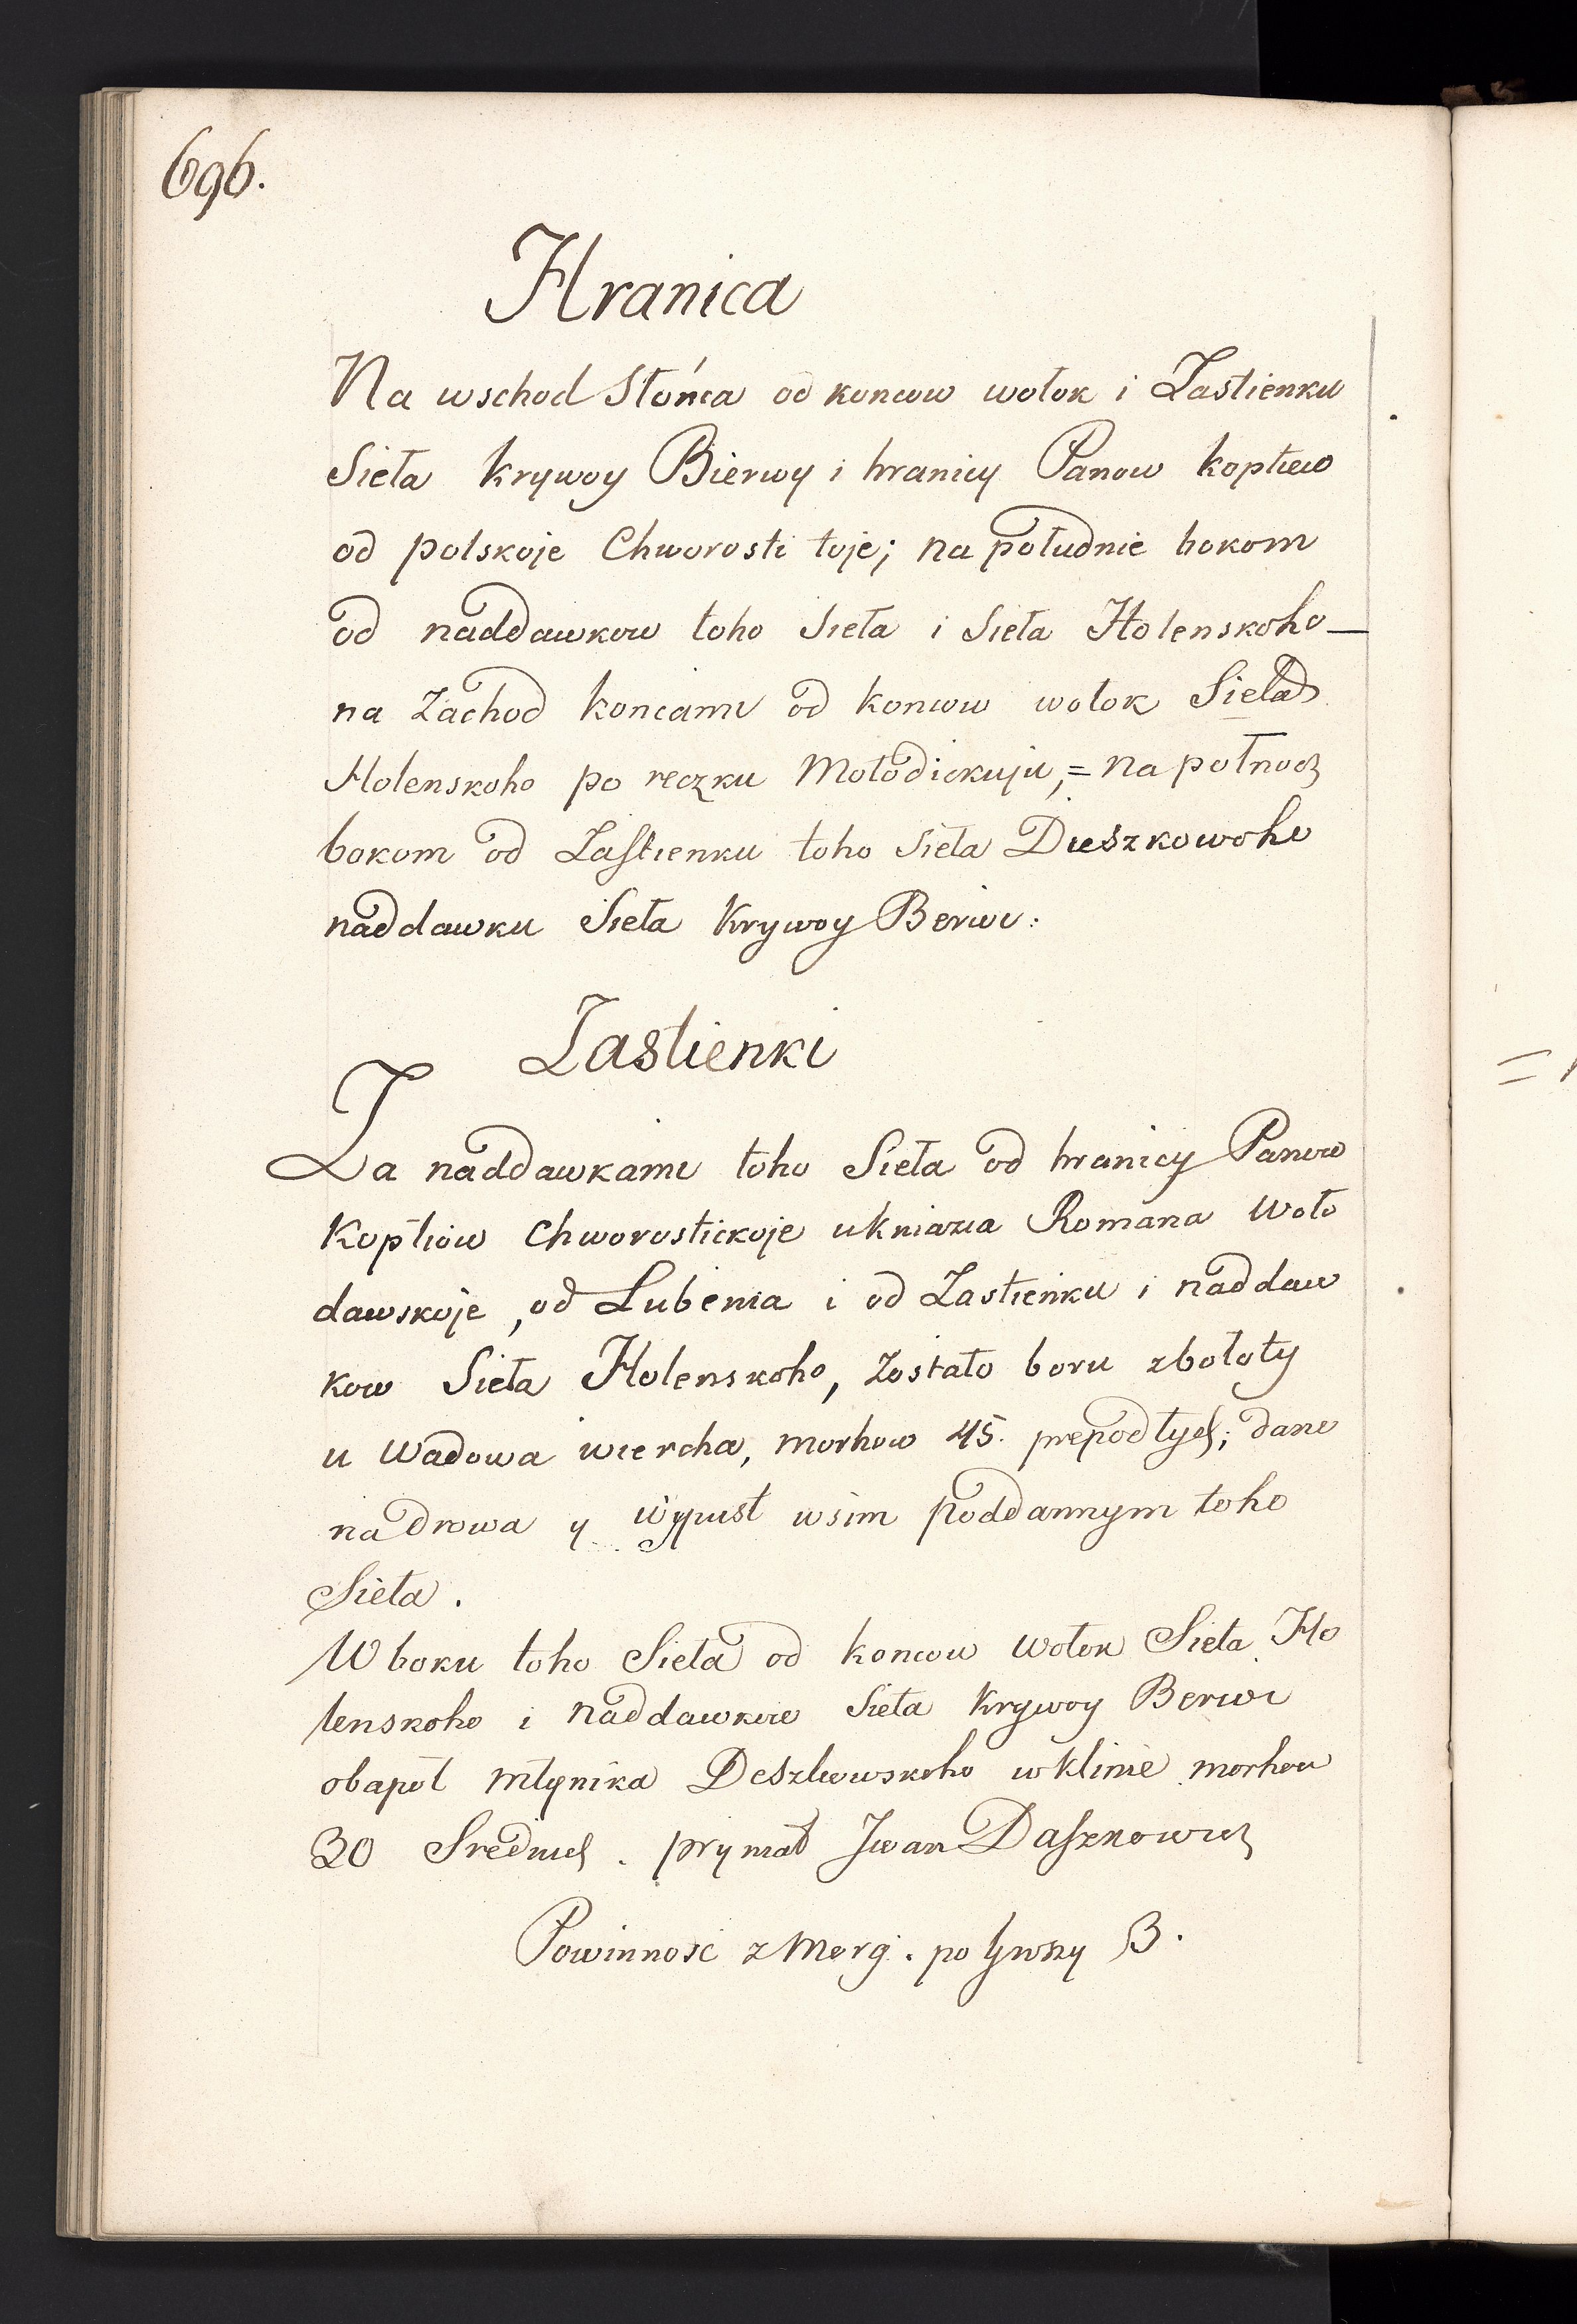 696.
Hranica
Na wschod Słońca od koncow wołok i Zastienku
Sieła Krywoy Bierwy i hranicy Panow koptiew
od polskoje Chworosti toje; na południe bokom
od naddawkow toho Sieła i Sieła Holenskoho—
na Zachod koncami od koncow wołok Sieła
Holenskoho po reczku Mołodickuju,= na połnocz
bokom od Zastienku toho Sieła Dieszkowoho
naddawku Sieła Krywoy Berwi:
Zastienki
Za naddawkami toho Sieła od hranicy Panow
Koptiow Chworostickoje u kniazia Romana Woło
dawskoje, od Lubenia i od Zastienku i naddaw
kow Sieła Holenskoho, zostało boru z bołoty
u Wadowa wiercha, morhow 45. prepodłych; dano
na drowa y wypust wsim poddannym toho
Sieła.
W boku toho Sieła od koncow wołok Sieła Ho
lenskoho i naddawkow Sieła Krywoy Berwi
obapoł młynika Deszkowskoho w klinie morhow
30 Srednich. prymał Iwan Daszkowicz
Powinnosc z Morg. po hroszy 3.
=